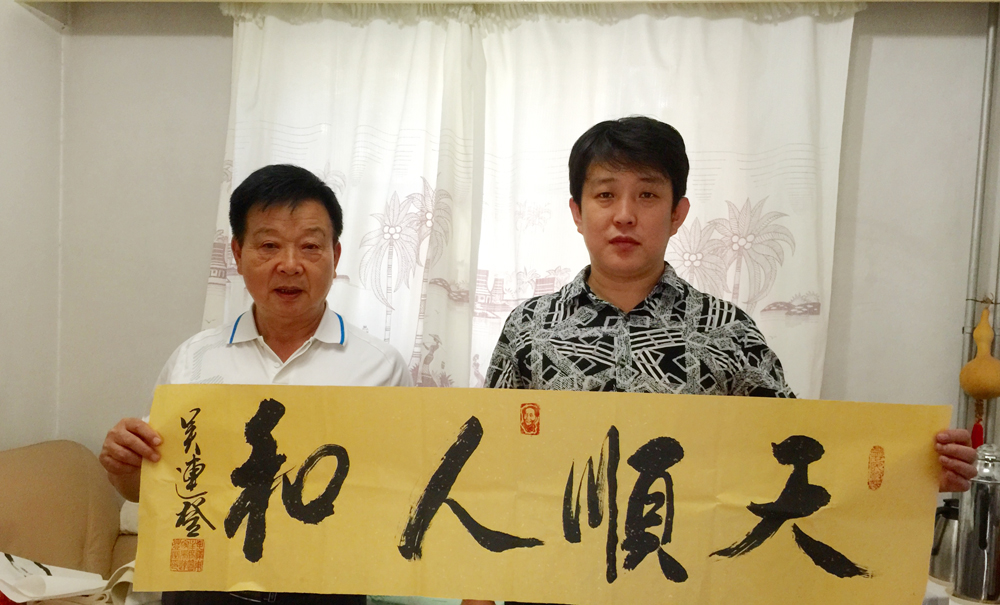 天順人和
吴連登